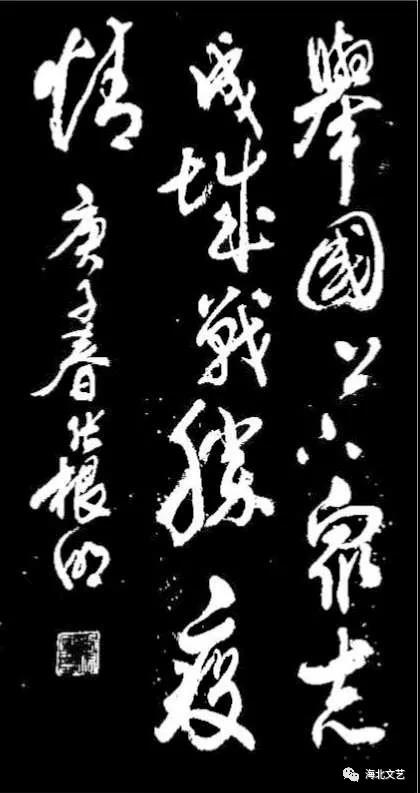 舉國上下眾志
成城戰勝疫
情 庚子春 根
海北文艺